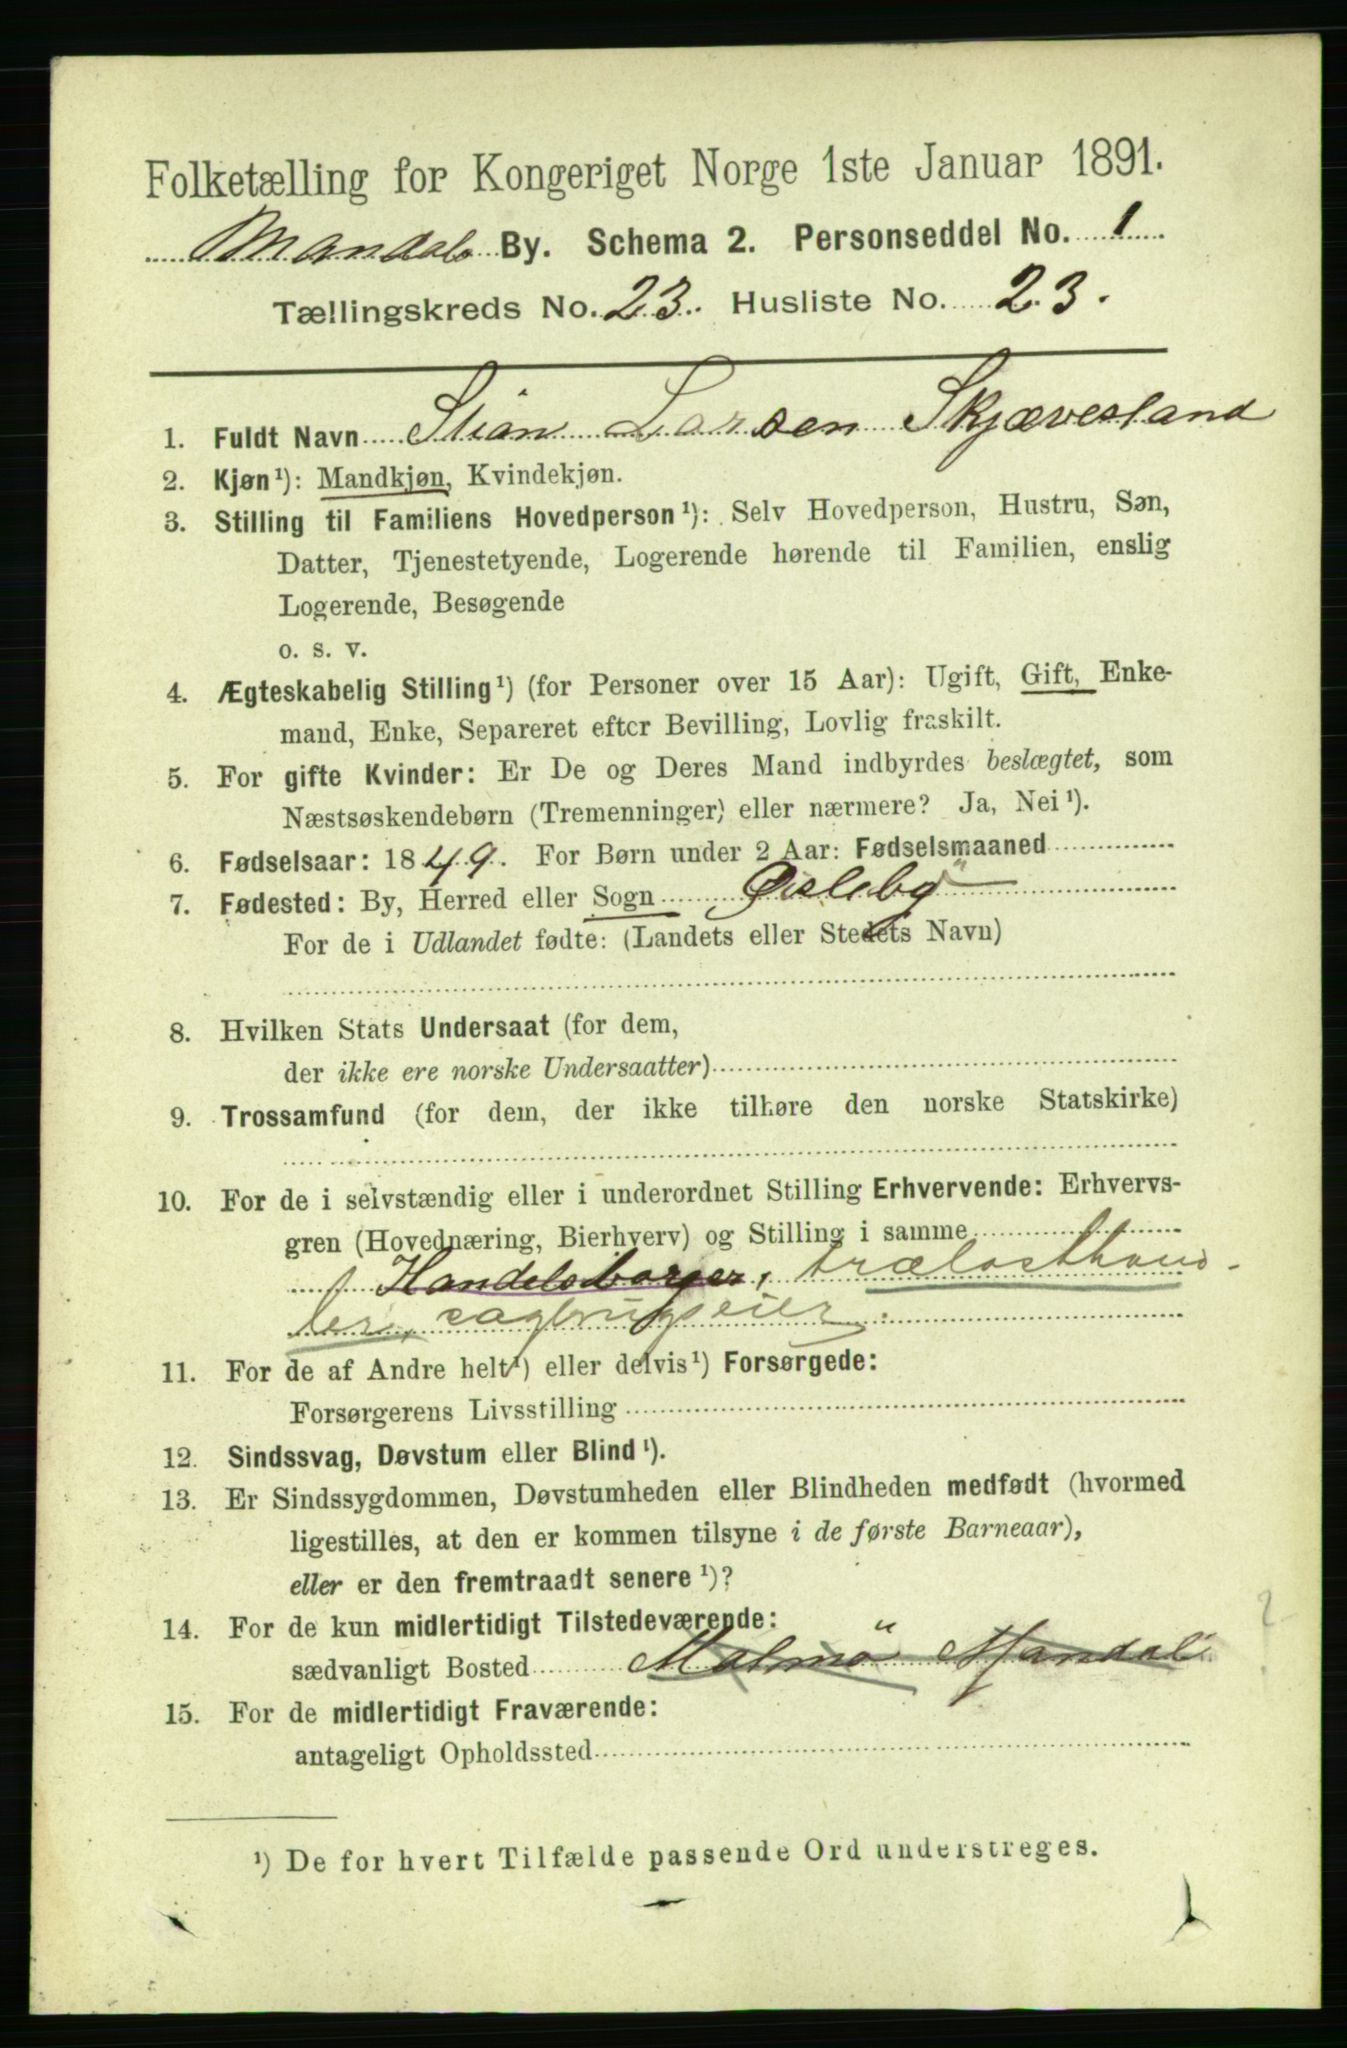 Folketælling for Kongeriget Norge 1ste Januar 1891.
Mandals By. Schema 2. Personseddel No. 1
Tællingskreds No. 23. Husliste No. 23.
1. Fuldt Navn Stian Larsen Skjævesland
2. Kjøn¹): Mandkjøn, Kvindekjøn.
3. Stilling til Familiens Hovedperson¹): Selv Hovedperson, Hustru, Søn,
Datter, Tjenestetyende, Logerende hørende til Familien, enslig
Logerende, Besøgende
o. s. v.
4. Ægteskabelig Stilling¹) (for Personer over 15 Aar): Ugift, Gift, Enke-
mand, Enke, Separeret efter Bevilling, Lovlig fraskilt.
5. For gifte Kvinder: Er De og Deres Mand indbyrdes beslægtet, som
Næstsøskendebørn (Tremenninger) eller nærmere? Ja, Nei¹).
6. Fødselsaar: 1849. For Børn under 2 Aar: Fødselsmaaned
7. Fødested: By, Herred eller Sogn Øislebø
For de i Udlandet fødte: (Landets eller Stedets Navn)
8. Hvilken Stats Undersaat (for dem,
der ikke ere norske Undersaatter)
9. Trossamfund (for dem, der ikke tilhøre den norske Statskirke)
10. For de i selvstændig eller i underordnet Stilling Erhvervende: Erhvervs-
gren (Hovednæring, Bierhverv) og Stilling i samme
Handelsborger, trælasthand-
ler, sagbrugseier.
11. For de af Andre helt¹) eller delvis¹) Forsørgede:
Forsørgerens Livsstilling
12. Sindssvag, Døvstum eller Blind¹).
13. Er Sindssygdommen, Døvstumheden eller Blindheden medfødt (hvormed
ligestilles, at den er kommen tilsyne i de første Barneaar),
eller er den fremtraadt senere¹)?
14. For de kun midlertidigt Tilstedeværende:
sædvanligt Bosted Malmø Mandal
15. For de midlertidigt Fraværende:
antageligt Opholdssted
¹) De for hvert Tilfælde passende Ord understreges.